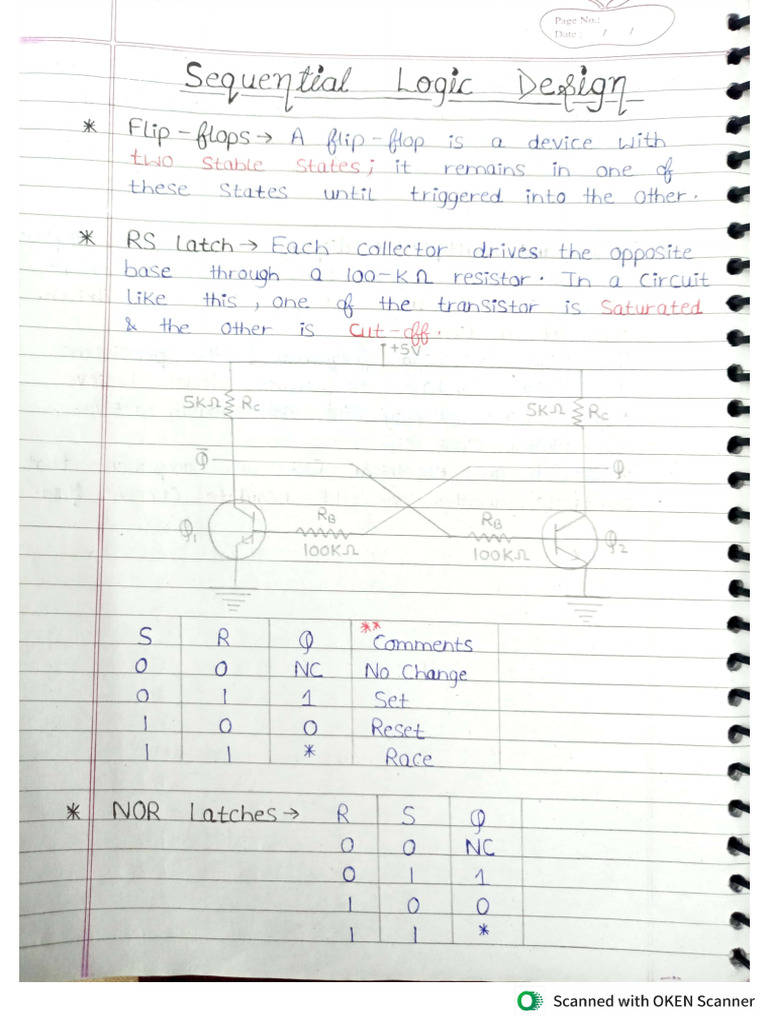 Page No.:
Date : / /
Sequential Logic Design
* Flip-flops → A flip-flop is a device with
two stable states; it remains in one of
these States until triggered into the other.
* RS Latch → Each collector drives the opposite
base through a 100-KΩ resistor. In a Circuit
like this, one of the transistor is Saturated
& the other is Cut-off.
+5V
5KΩ Rc 5KΩ Rc
Q̅ Q
Q1 RB RB Q2
100KΩ 100KΩ
S R Q ** Comments
0 0 NC No Change
0 1 1 Set
1 0 0 Reset
1 1 * Race
* NOR Latches → R S Q
0 0 NC
0 1 1
1 0 0
1 1 *
Scanned with OKEN Scanner